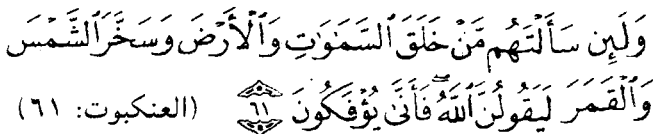 وَلَئِن سَأَلْتَهُم مَّنْ خَلَقَ ٱلسَّمَٰوَٰتِ وَٱلْأَرْضَ وَسَخَّرَ ٱلشَّمْسَ
وَٱلْقَمَرَ لَيَقُولُنَّ ٱللَّهُ ۖ فَأَنَّىٰ يُؤْفَكُونَ ٦١ (العنكبوت: ٦١)